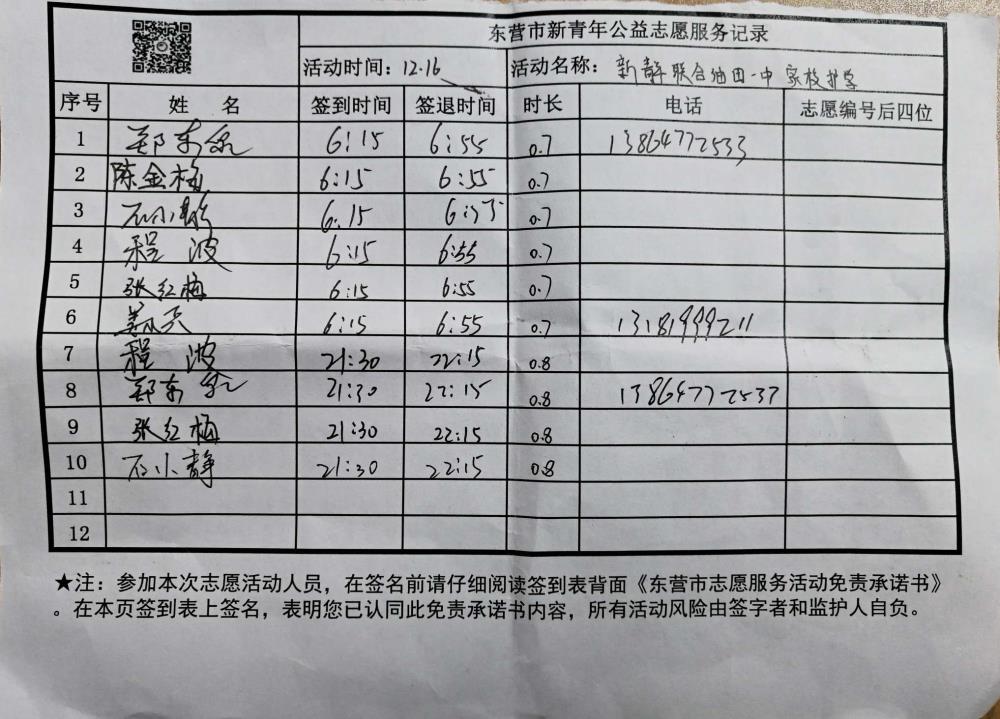 东营市新青年公益志愿服务记录
活动时间：12.16 活动名称：新青年联合油田一中家校护学
序号 姓 名 签到时间 签退时间 时长 电话 志愿编号后四位
1 郑东 6:15 6:55 0.7 13864772533
2 陈金梅 6:15 6:55 0.7
3 石小静 6:15 6:55 0.7
4 程波 6:15 6:55 0.7
5 张红梅 6:15 6:55 0.7
6 6:15 6:55 0.7 13181999211
7 程波 21:30 22:15 0.8
8 郑东 21:30 22:15 0.8 13864772533
9 张红梅 21:30 22:15 0.8
10 石小静 21:30 22:15 0.8
11
12
★注：参加本次志愿活动人员，在签名前请仔细阅读签到表背面《东营市志愿服务活动免责承诺书》
。在本页签到表上签名，表明您已认同此免责承诺书内容，所有活动风险由签字者和监护人自负。